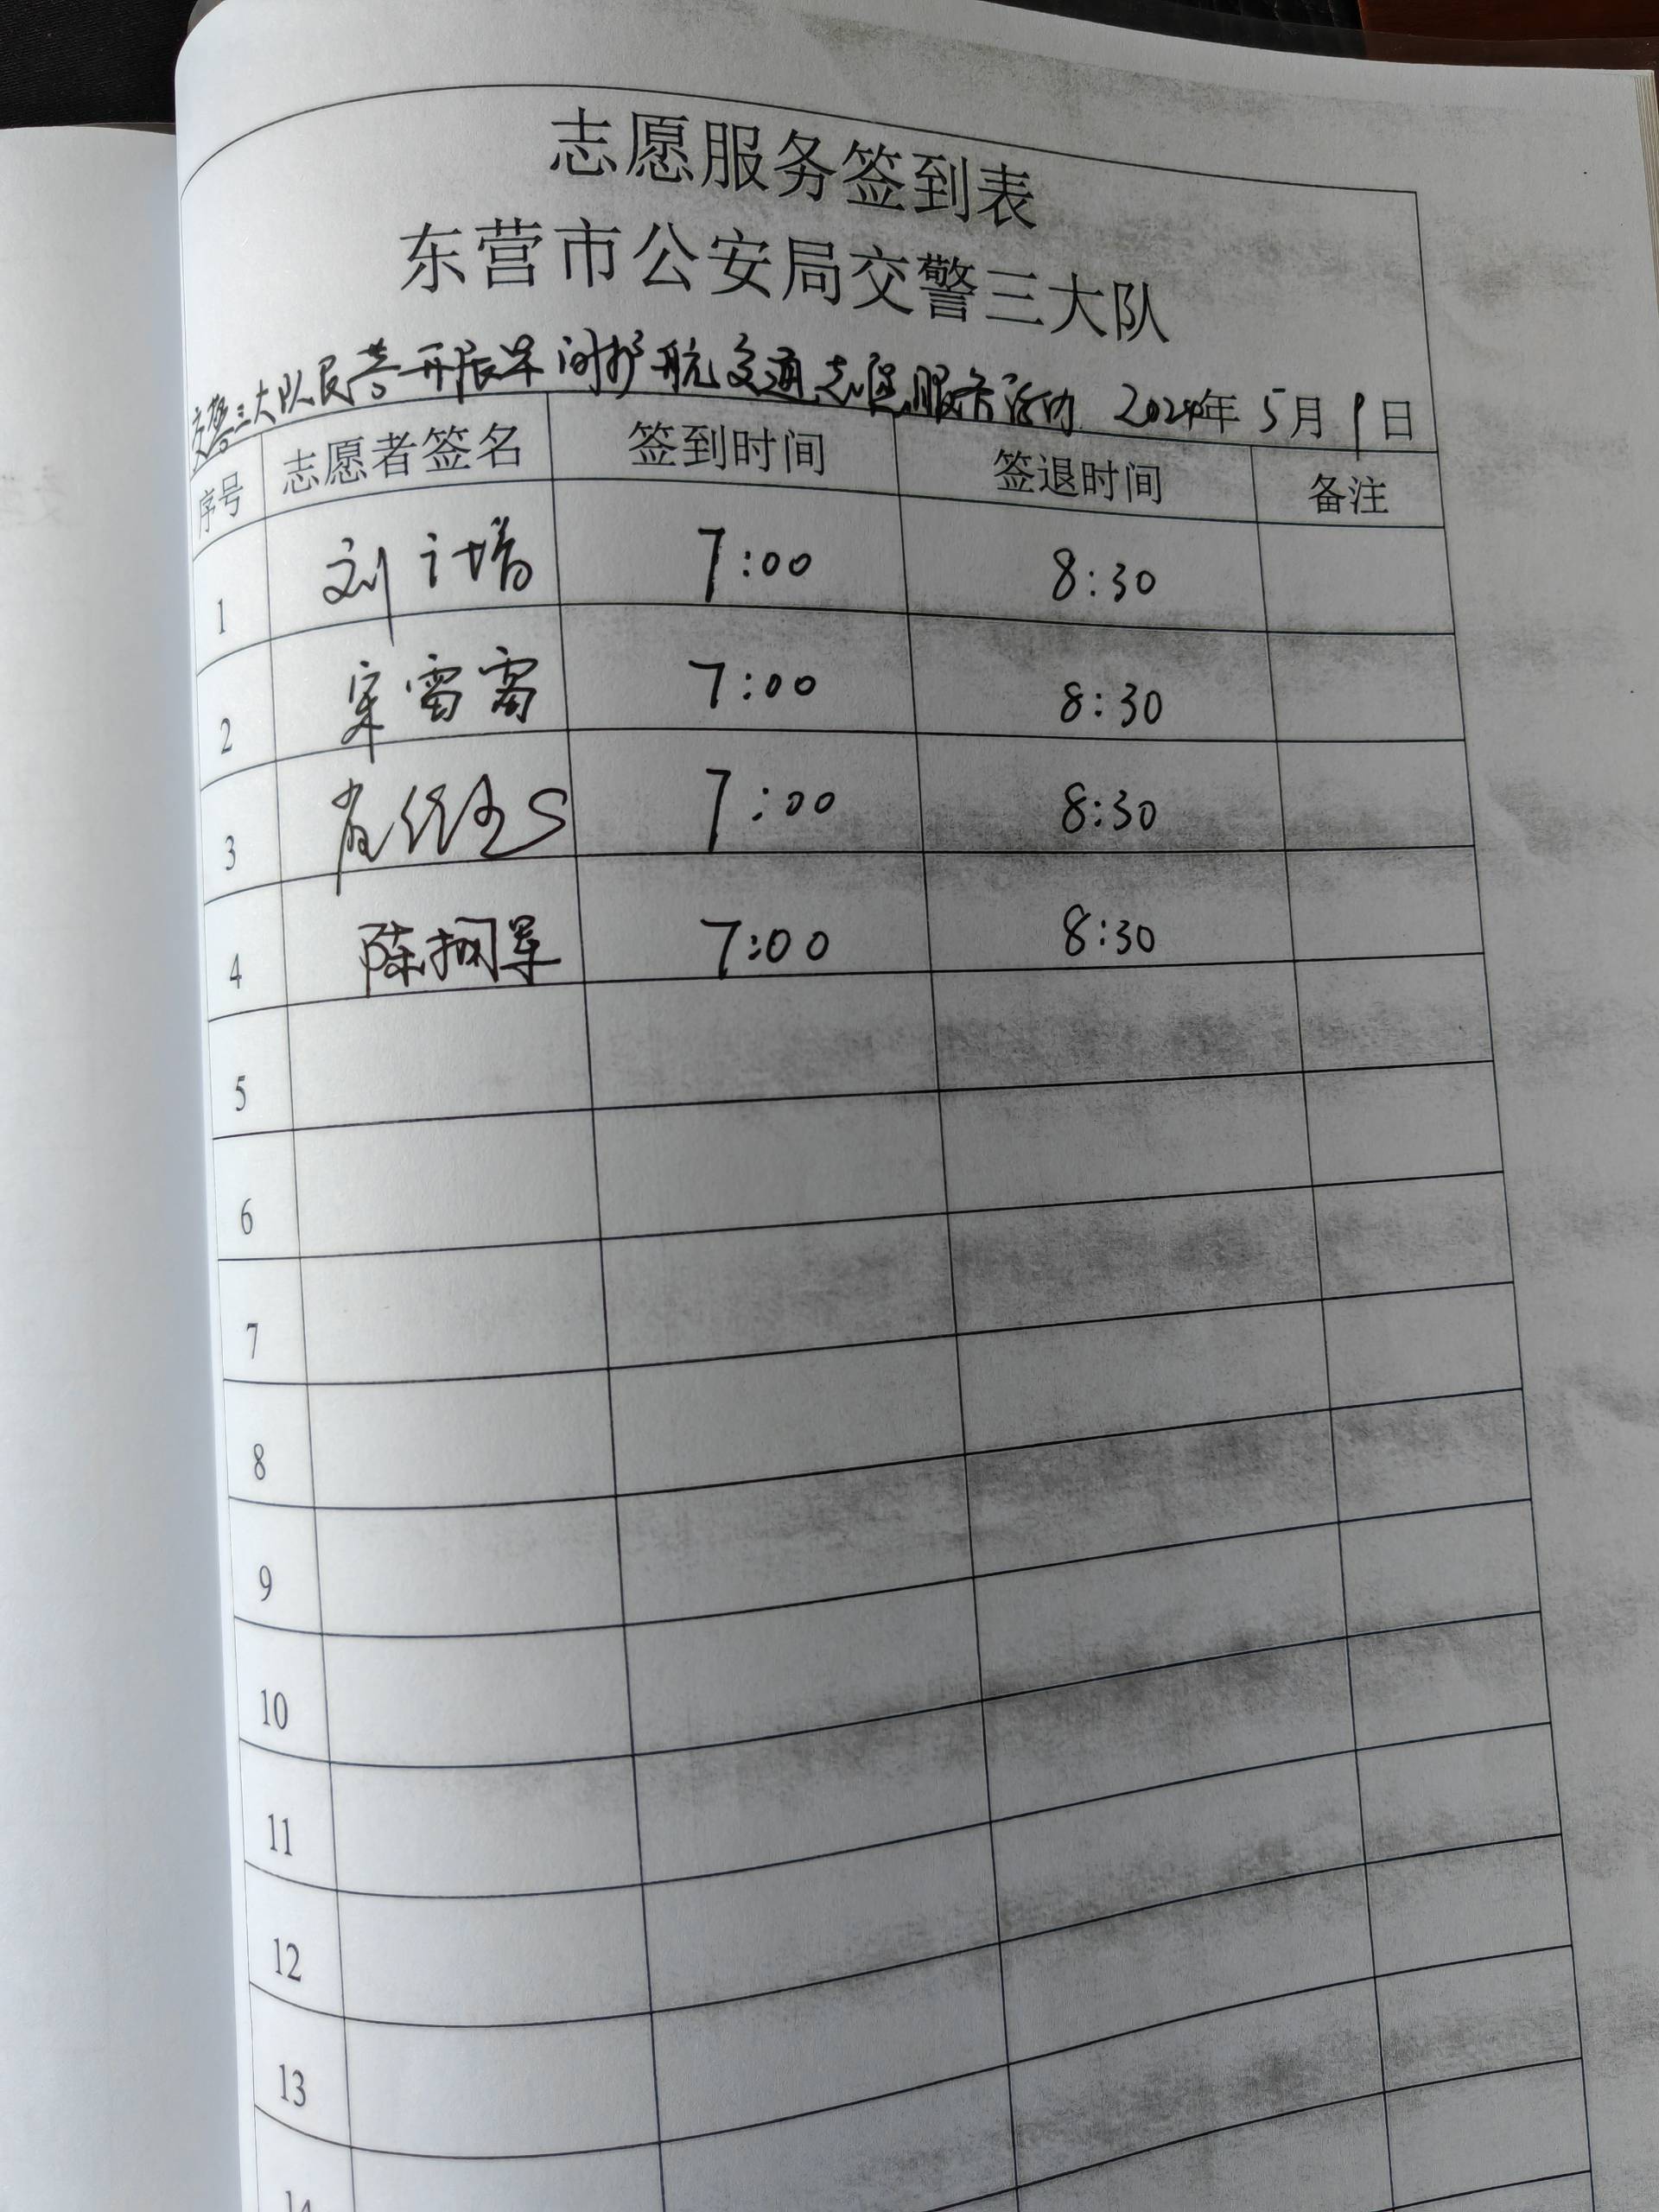 志愿服务签到表
东营市公安局交警三大队
交警三大队民警开展早间护航交通志愿服务活动 2024年5月9日
序号 志愿者签名 签到时间 签退时间 备注
1 刘计增 7:00 8:30
2 宋雷雷 7:00 8:30
3 7:00 8:30
4 陈树军 7:00 8:30
5
6
7
8
9
10
11
12
13
14